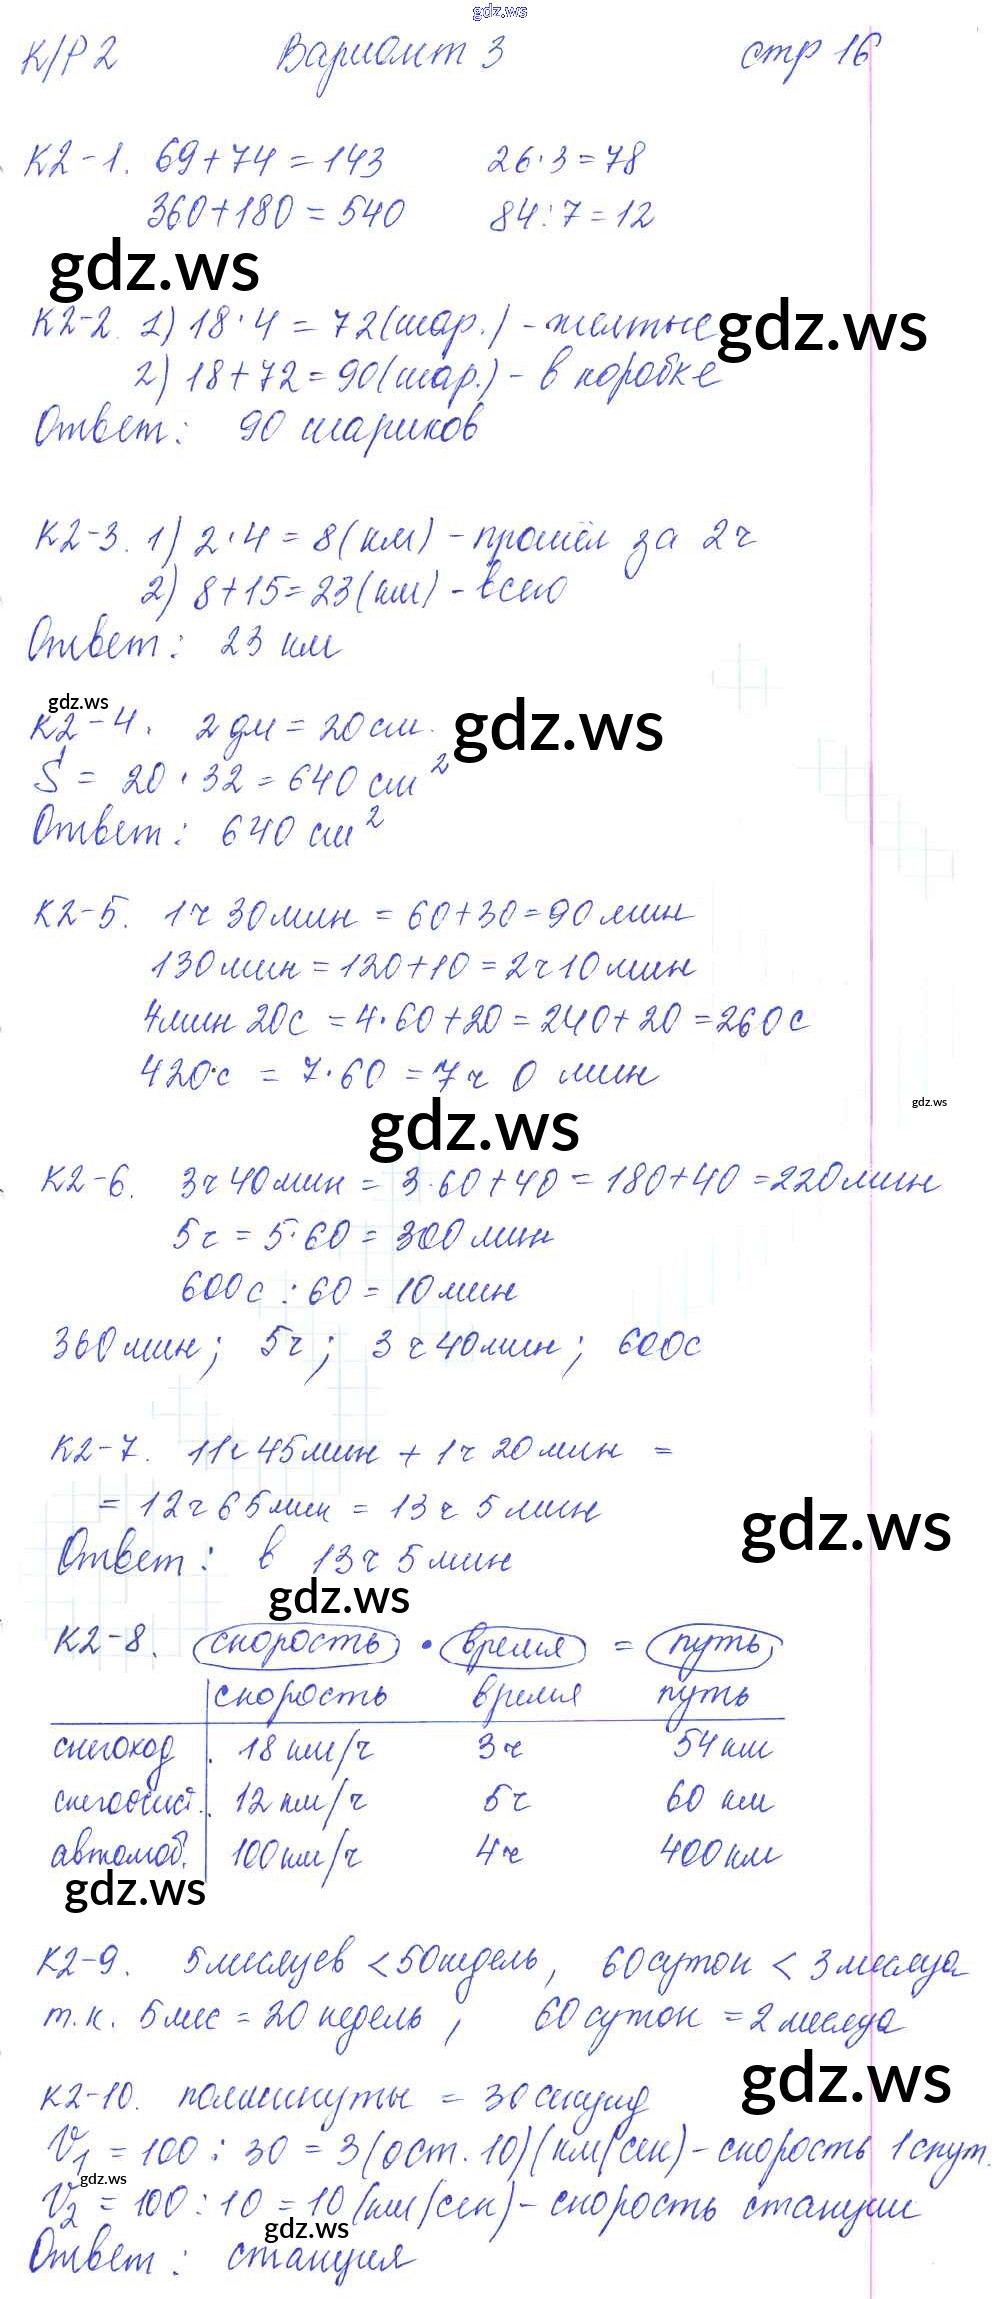 gdz.ws
К/Р 2 Вариант 3 стр 16
К2-1. 69+74=143 26·3=78
360+180=540 84:7=12
gdz.ws
К2-2. 1) 18·4=72(шар.) - желтые
gdz.ws
2) 18+72=90(шар.) - в коробке
Ответ: 90 шариков
К2-3. 1) 2·4=8(км) - прошёл за 2ч
2) 8+15=23(км) - всего
Ответ: 23 км
gdz.ws
К2-4. 2дм=20см.
gdz.ws
S = 20·32=640 см²
Ответ: 640 см²
К2-5. 1ч 30мин = 60+30=90мин
130мин=120+10=2ч10мин
4мин 20с = 4·60+20=240+20=260с
420с = 7·60=7ч 0 мин
gdz.ws
gdz.ws
К2-6. 3ч 40мин = 3·60+40=180+40=220мин
5ч = 5·60=300мин
600с : 60 = 10мин
360мин; 5ч; 3ч40мин; 600с
К2-7. 11ч 45мин + 1ч 20мин =
= 12ч 65мин = 13ч 5мин
gdz.ws
Ответ: в 13ч 5мин
gdz.ws
К2-8. скорость · время = путь
скорость время путь
снегоход. 18 км/ч 3ч 54км
снегоочист. 12 км/ч 5ч 60 км
автомоб. 100км/ч 4ч 400км
gdz.ws
К2-9. 5месяцев <50недель, 60суток < 3месяца
т.к. 5мес=20недель, 60суток=2месяца
gdz.ws
К2-10. полминуты = 30секунд
V₁=100:30=3(ост.10)(км/сек)-скорость 1спут.
gdz.ws
V₂=100:10=10(км/сек)-скорость станции
gdz.ws
Ответ: станция